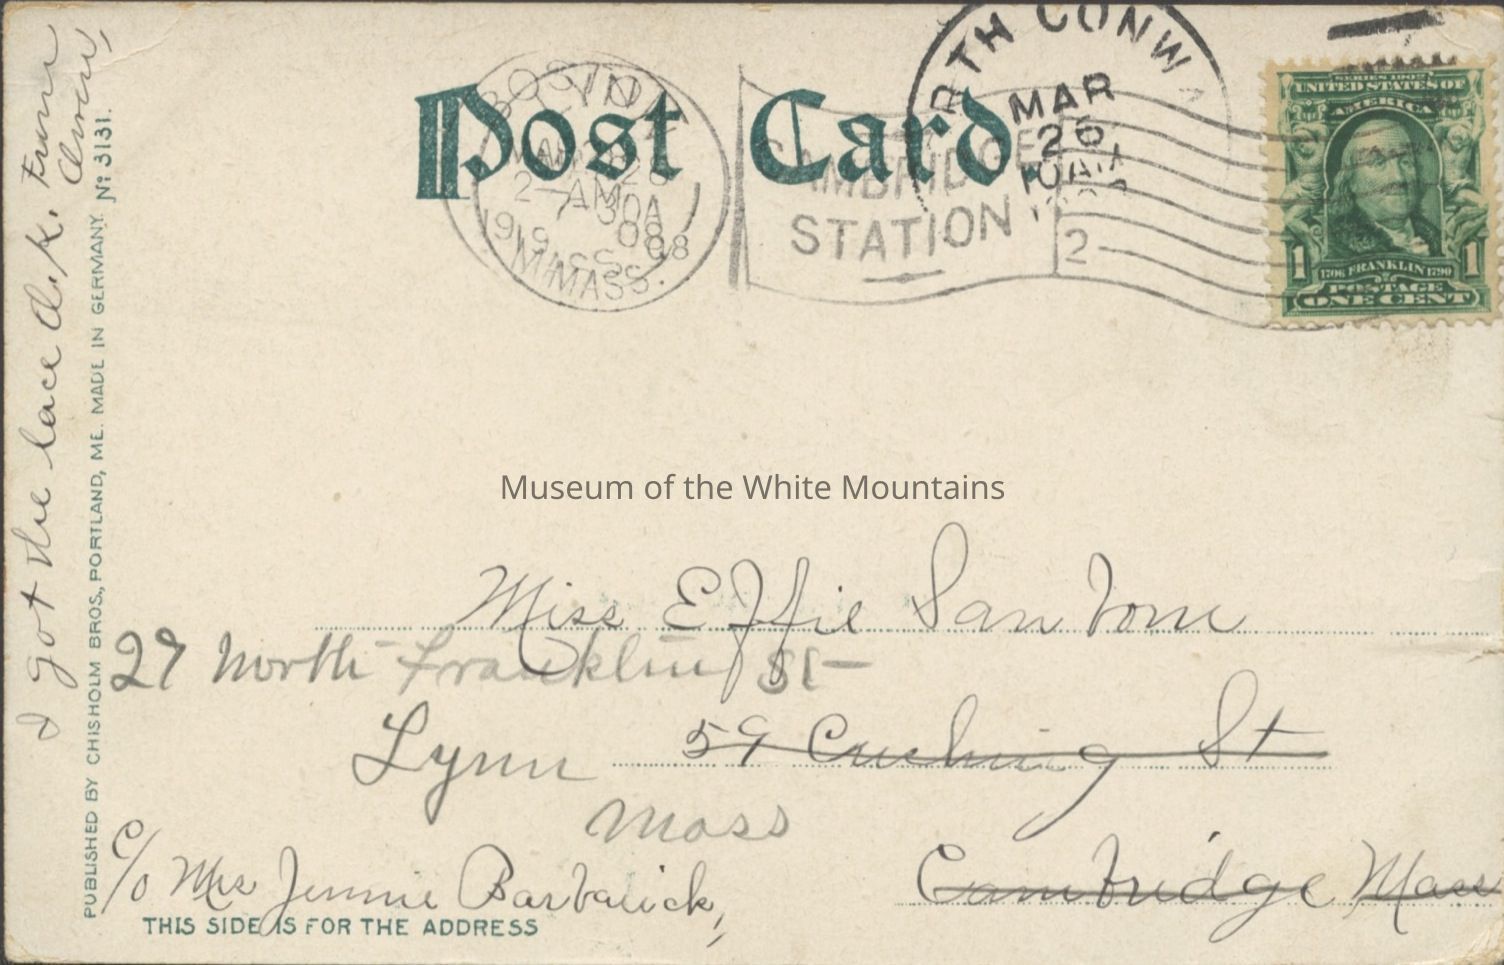 Post Card.
BOSTON
LYNN
MAR 26
2-AM
7-30A
1908
MASS.
MASS.
CAMBRIDGE
STATION
2
RTH CONWA
MAR
26
10 AM
SERIES 1902
UNITED STATES OF
AMERICA
1 1
1706 FRANKLIN 1790
POSTAGE
ONE CENT
I got the lace O.K.
PUBLISHED BY CHISHOLM BROS., PORTLAND, ME. MADE IN GERMANY. No 3131.
Museum of the White Mountains
Miss Effie Sanborn
27 North Franklin St
Lynn 59 Cushing St
Mass
Cambridge Mass
c/o Mrs Jennie Barbarick,
THIS SIDE IS FOR THE ADDRESS